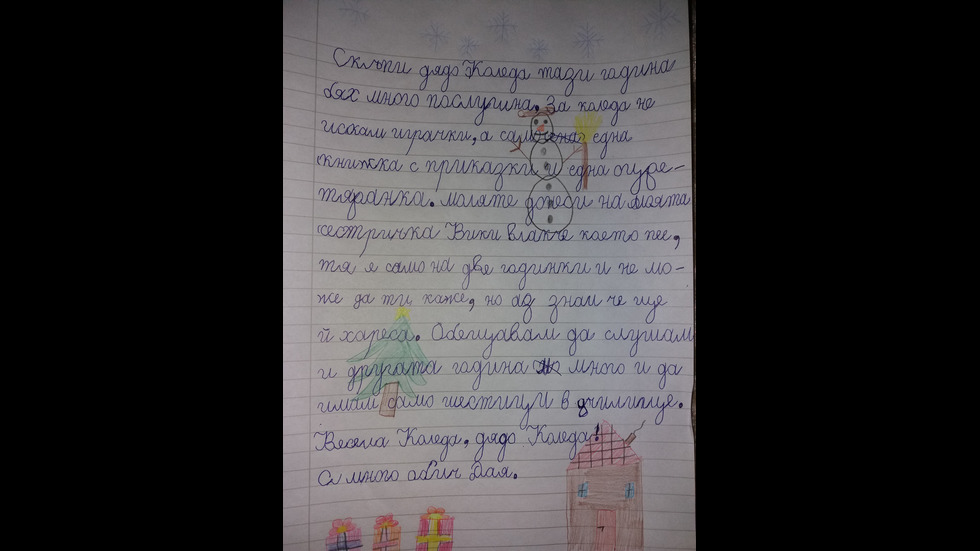 Скъпи дядо Коледа тази година
бях много послушна. За коледа не
искам играчки, а само една
книжка с приказки и една огре-
моляте донеси на моята
сестричка Вики влакче което пее,
тя я само на две годинки и не мо-
же да ти каже, но аз знам че ще
й хареса. Обещавам да слушам
и другата година много и да
имам само шестици в училище.
Весела Коледа, дядо Коледа!
С много обич Дая.